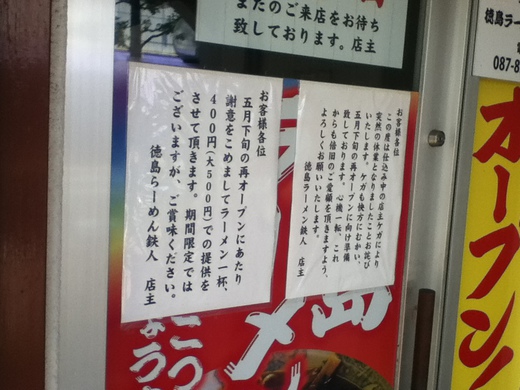 またのご来店をお待ち
致しております。店主
徳島ラー
087-8
オープン!
お客様各位
この度は仕込み中の店主ケガにより
突然の休業となりましたことお詫び
いたします。ケガも快方にむかい、
五月下旬の再オープンに向け準備
致しております。心機一転、これ
からも倍旧のご愛顧を頂きますよう、
よろしくお願いいたします。
徳島らーめん鉄人 店主
お客様各位
五月下旬の再オープンにあたり
謝意をこめましてラーメン一杯、
400円(大500円)での提供を
させて頂きます。期間限定では
ございますが、ご賞味ください。
徳島らーめん鉄人 店主
島
こつ
ょう